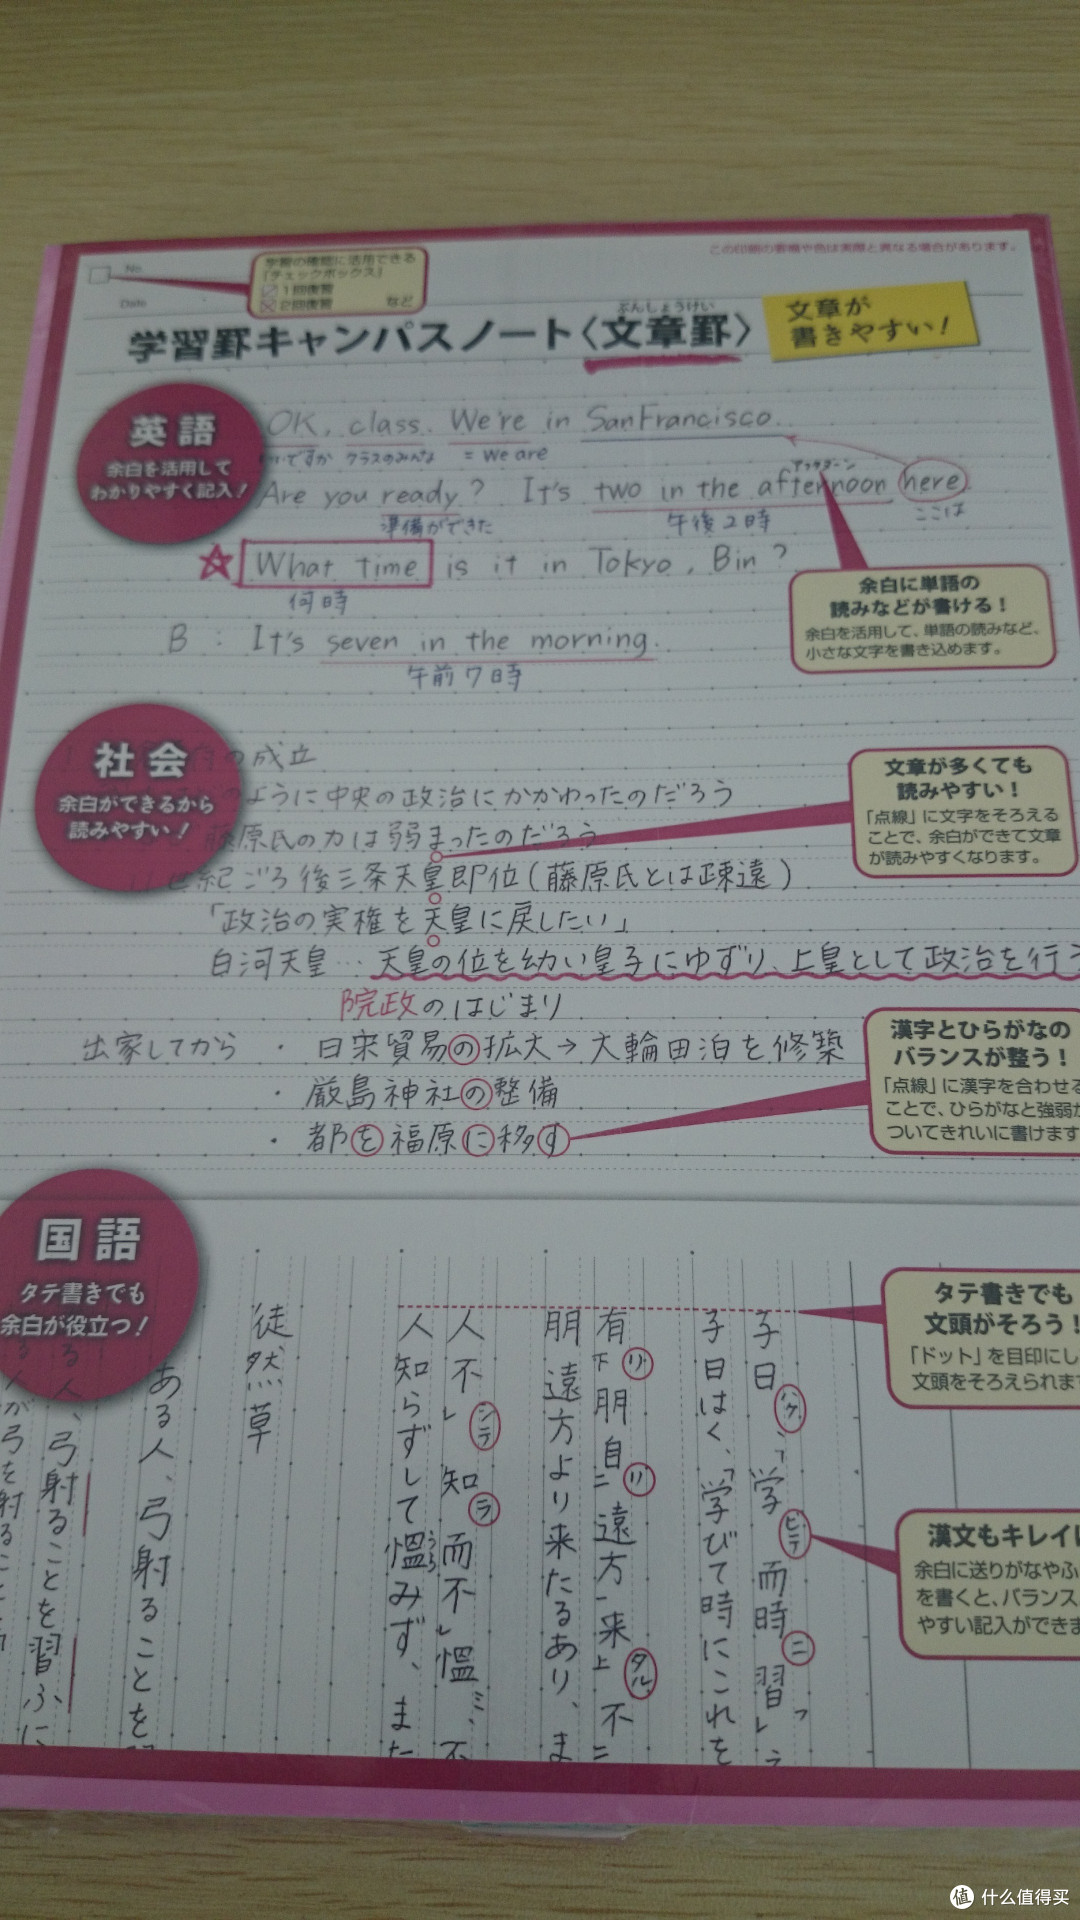 この印刷の罫幅や色は実際と異なる場合があります。
No.
Date
学習の確認に活用できる
「チェックボックス」
1回復習
2回復習 など
ぶんしょうけい
学習罫キャンパスノート〈文章罫〉
文章が
書きやすい!
英語
余白を活用して
わかりやすく記入!
OK, class. We're in San Francisco.
いいですか クラスのみんな = We are
アフタヌーン
Are you ready? It's two in the afternoon here.
準備ができた 午後2時 ここは
What time is it in Tokyo, Bin?
何時
B : It's seven in the morning.
午前7時
余白に単語の
読みなどが書ける!
余白を活用して、単語の読みなど、
小さな文字を書き込めます。
社会
余白ができるから
読みやすい!
の成立
のように中央の政治にかかわったのだろう
藤原氏の力は弱まったのだろう
世紀ごろ後三条天皇即位(藤原氏とは疎遠)
「政治の実権を天皇に戻したい」
白河天皇…天皇の位を幼い皇子にゆずり、上皇として政治を行う
院政のはじまり
出家してから ・ 日宋貿易の拡大→大輪田泊を修築
・ 厳島神社の整備
・ 都を福原に移す
文章が多くても
読みやすい!
「点線」に文字をそろえる
ことで、余白ができて文章
が読みやすくなります。
漢字とひらがなの
バランスが整う!
「点線」に漢字を合わせる
ことで、ひらがなと強弱が
ついてきれいに書けます
国語
タテ書きでも
余白が役立つ!
子曰ハク、「学ビテ而時ニ習レ
子曰はく、「学びて時にこれを
有下リ朋自二リ遠方一来上タル不
朋遠方より来たるあり、ま
人不レシテ知ラ而不レ慍ミ、不
人知らずして慍うらみず、また
徒然草
ある人、弓射ることを
る人、弓射ることを習ふに
が弓を射ること
タテ書きでも
文頭がそろう!
「ドット」を目印にし
文頭をそろえられます
漢文もキレイに
余白に送りがなやふ
を書くと、バランス
やすい記入ができま
值 什么值得买